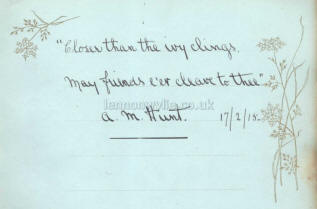 "Closer than the ivy clings,
May friends e'er cleave to thee"
lennonwylie.co.uk
A. M. Hunt. 17/2/18.